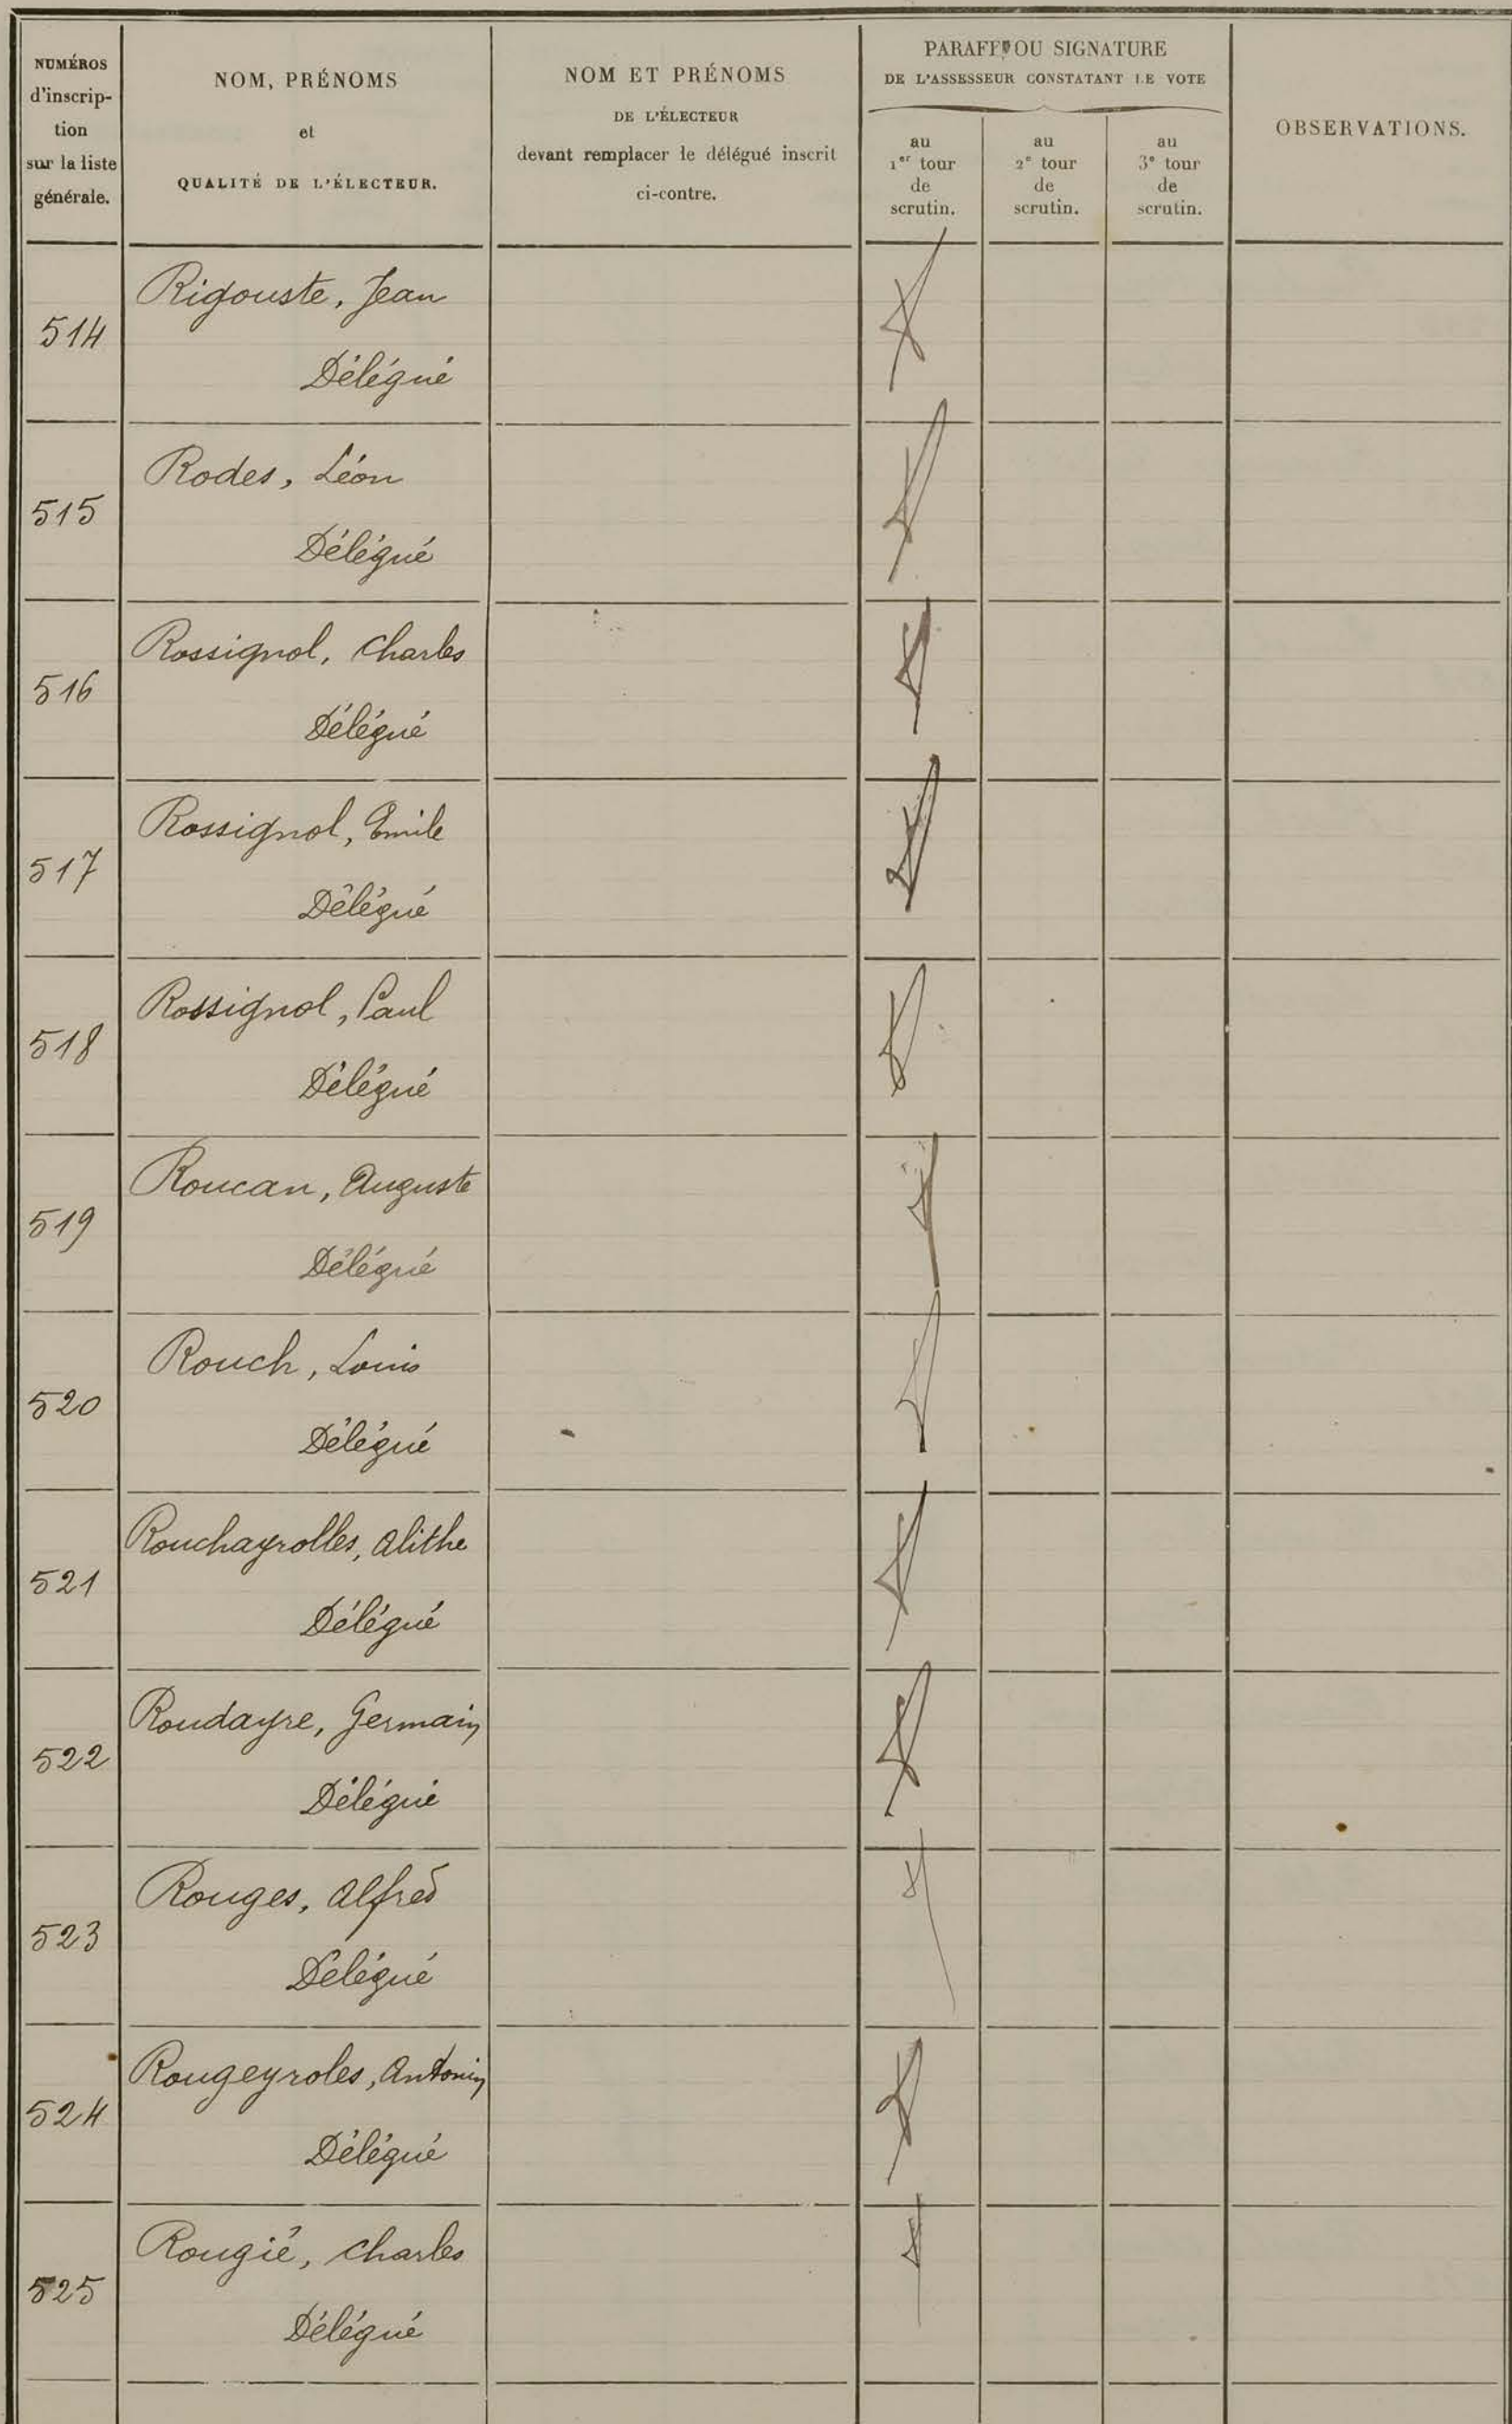 NUMÉROS
d'inscrip-
tion
sur la liste
générale.
NOM, PRÉNOMS
et
QUALITÉ DE L'ÉLECTEUR.
NOM ET PRÉNOMS
DE L'ÉLECTEUR
devant remplacer le délégué inscrit
ci-contre.
PARAFE OU SIGNATURE
DE L'ASSESSEUR CONSTATANT LE VOTE
au
1er tour
de
scrutin.
au
2e tour
de
scrutin.
au
3e tour
de
scrutin.
OBSERVATIONS.
514
Rigouste, Jean
Délégué
515
Rodes, Léon
Délégué
516
Rossignol, Charles
Délégué
517
Rossignol, Emile
Délégué
518
Rossignol, Paul
Délégué
519
Roucan, Auguste
Délégué
520
Rouch, Louis
Délégué
521
Rouchayrolles, Alithe
Délégué
522
Roudayre, Germain
Délégué
523
Rouges, Alfred
Délégué
524
Rougeyroles, Antonin
Délégué
525
Rougié, Charles
Délégué